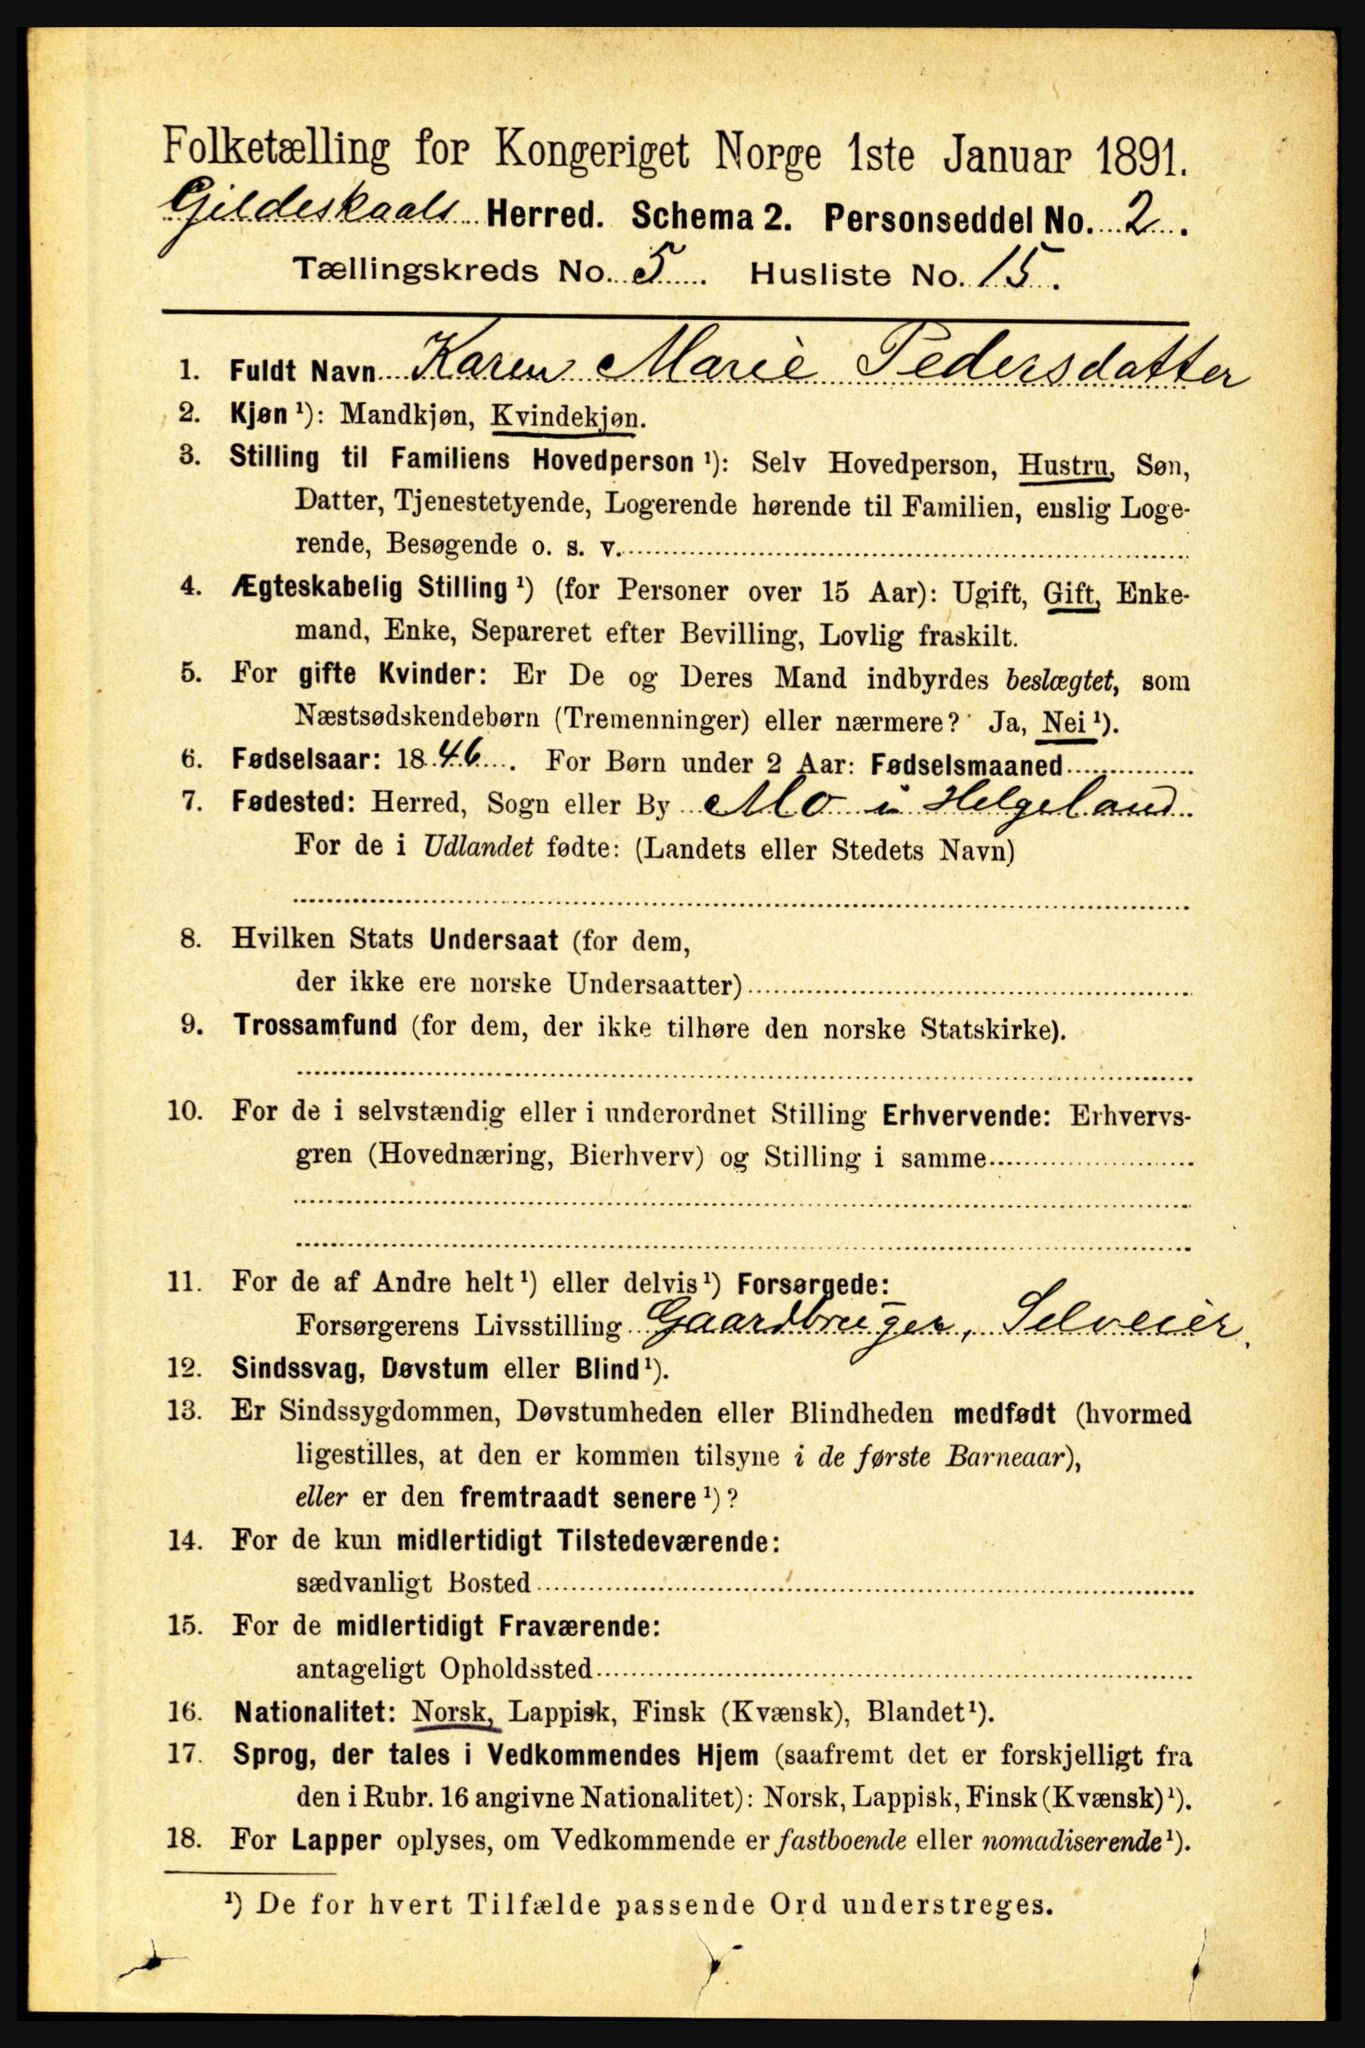 Folketælling for Kongeriget Norge 1ste Januar 1891.
Gildeskaals Herred. Schema 2. Personseddel No. 2.
Tællingskreds No. 5. Husliste No. 15.
1. Fuldt Navn Karen Marie Pedersdatter
2. Kjøn ¹): Mandkjøn, Kvindekjøn.
3. Stilling til Familiens Hovedperson ¹): Selv Hovedperson, Hustru, Søn,
Datter, Tjenestetyende, Logerende hørende til Familien, enslig Loge-
rende, Besøgende o. s. v.
4. Ægteskabelig Stilling ¹) (for Personer over 15 Aar): Ugift, Gift, Enke-
mand, Enke, Separeret efter Bevilling, Lovlig fraskilt.
5. For gifte Kvinder: Er De og Deres Mand indbyrdes beslægtet, som
Næstsødskendebørn (Tremenninger) eller nærmere? Ja, Nei ¹).
6. Fødselsaar: 1846. For Børn under 2 Aar: Fødselsmaaned
7. Fødested: Herred, Sogn eller By Mo i Helgeland.
For de i Udlandet fødte: (Landets eller Stedets Navn)
8. Hvilken Stats Undersaat (for dem,
der ikke ere norske Undersaatter)
9. Trossamfund (for dem, der ikke tilhøre den norske Statskirke).
10. For de i selvstændig eller i underordnet Stilling Erhvervende: Erhvervs-
gren (Hovednæring, Bierhverv) og Stilling i samme
11. For de af Andre helt ¹) eller delvis ¹) Forsørgede:
Forsørgerens Livsstilling Gaardbruger, Selveier.
12. Sindssvag, Døvstum eller Blind ¹).
13. Er Sindssygdommen, Døvstumheden eller Blindheden medfødt (hvormed
ligestilles, at den er kommen tilsyne i de første Barneaar),
eller er den fremtraadt senere ¹)?
14. For de kun midlertidigt Tilstedeværende:
sædvanligt Bosted
15. For de midlertidigt Fraværende:
antageligt Opholdssted
16. Nationalitet: Norsk, Lappisk, Finsk (Kvænsk), Blandet ¹).
17. Sprog, der tales i Vedkommendes Hjem (saafremt det er forskjelligt fra
den i Rubr. 16 angivne Nationalitet): Norsk, Lappisk, Finsk (Kvænsk) ¹).
18. For Lapper oplyses, om Vedkommende er fastboende eller nomadiserende ¹).
¹) De for hvert Tilfælde passende Ord understreges.